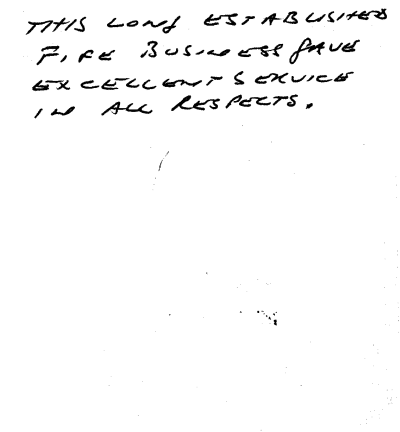 THIS LONG ESTABLISHED
FIRE BUSINESS GAVE
EXCELLENT SERVICE
IN ALL RESPECTS.